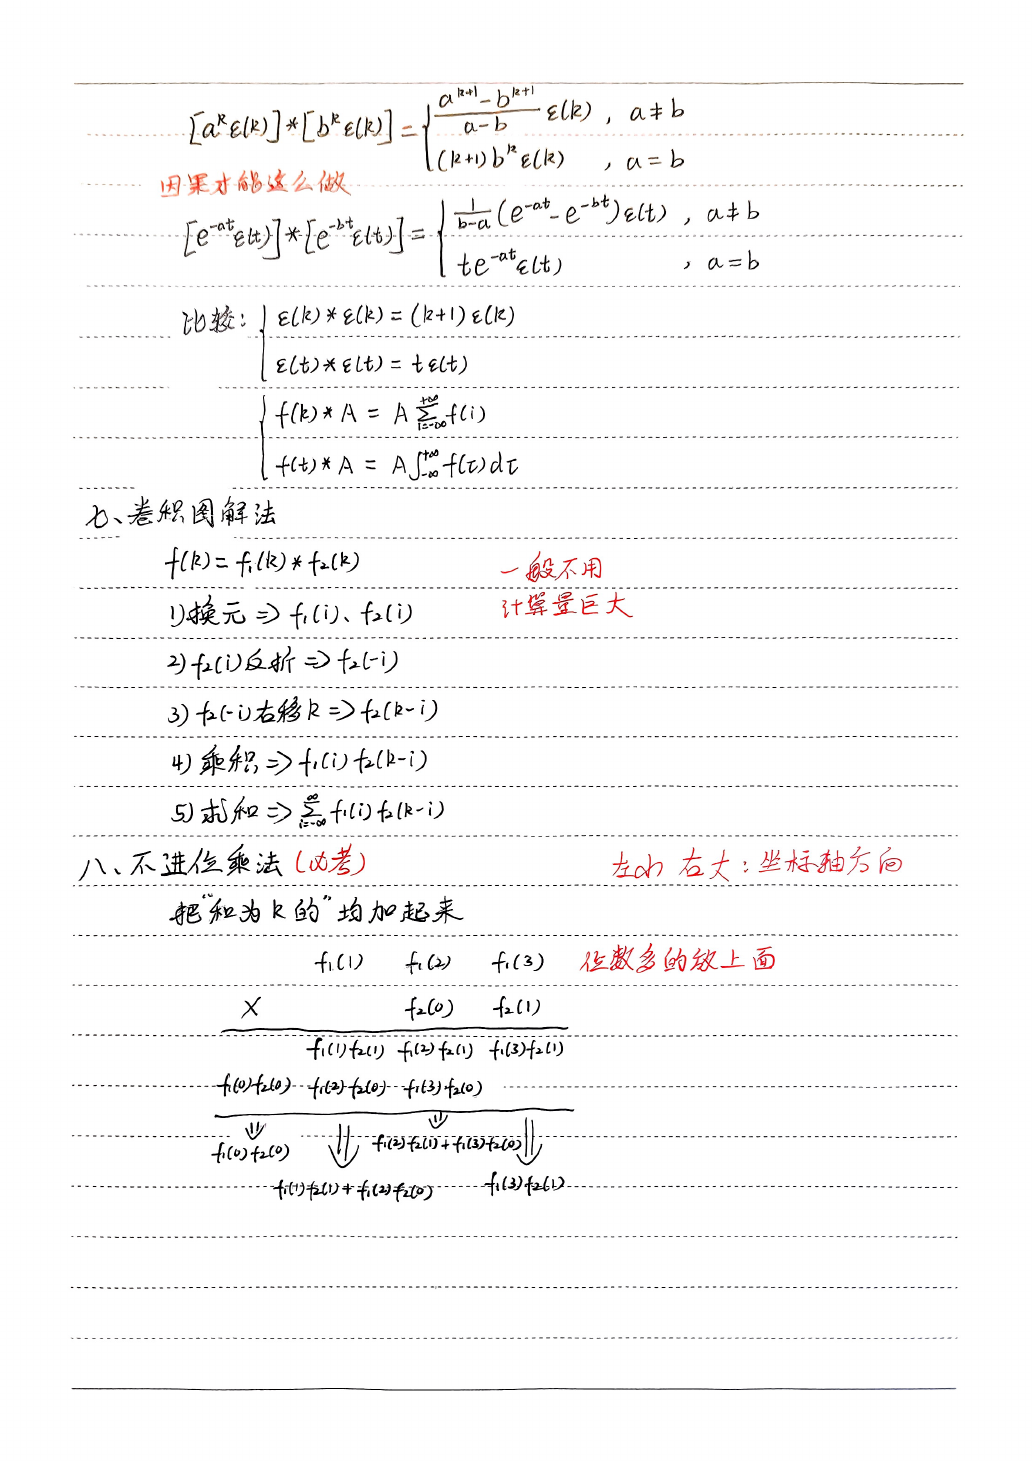 [aᵏε(k)]*[bᵏε(k)] = { (aᵏ⁺¹-bᵏ⁺¹)/(a-b) ε(k), a≠b
(k+1)bᵏε(k), a=b
因果才能这么做
[e^{-at}ε(t)]*[e^{-bt}ε(t)] = { 1/(b-a) (e^{-at}-e^{-bt})ε(t), a≠b
te^{-at}ε(t), a=b
比较: { ε(k)*ε(k)=(k+1)ε(k)
ε(t)*ε(t)=tε(t)
{ f(k)*A = A∑_{i=-∞}^{+∞}f(i)
f(t)*A = A∫_{-∞}^{+∞}f(τ)dτ
七、卷积图解法
f(k)=f₁(k)*f₂(k)
一般不用
1)换元⇒f₁(i)、f₂(i)
计算量巨大
2)f₂(i)反折⇒f₂(-i)
3)f₂(-i)右移k⇒f₂(k-i)
4)乘积⇒f₁(i)f₂(k-i)
5)求和⇒∑_{i=-∞}^{∞}f₁(i)f₂(k-i)
八、不进位乘法(必考) 左小 右大:坐标轴方向
把"和为k的"均加起来
f₁(1) f₁(2) f₁(3) 位数多的放上面
× f₂(0) f₂(1)
f₁(1)f₂(1) f₁(2)f₂(1) f₁(3)f₂(1)
f₁(0)f₂(0) f₁(2)f₂(0) f₁(3)f₂(0)
⇓ ⇓ ⇓ ⇓
f₁(0)f₂(0) f₁(2)f₂(1)+f₁(3)f₂(0)
f₁(1)f₂(1)+f₁(2)f₂(0) f₁(3)f₂(1)